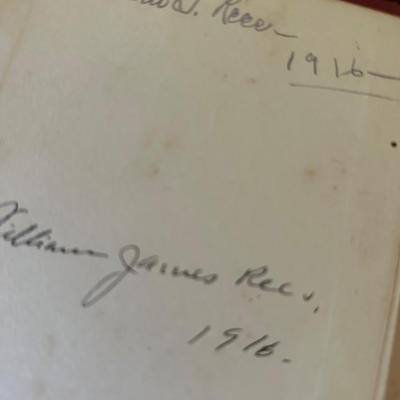 J. Reese
1916
William James Rees,
1916.